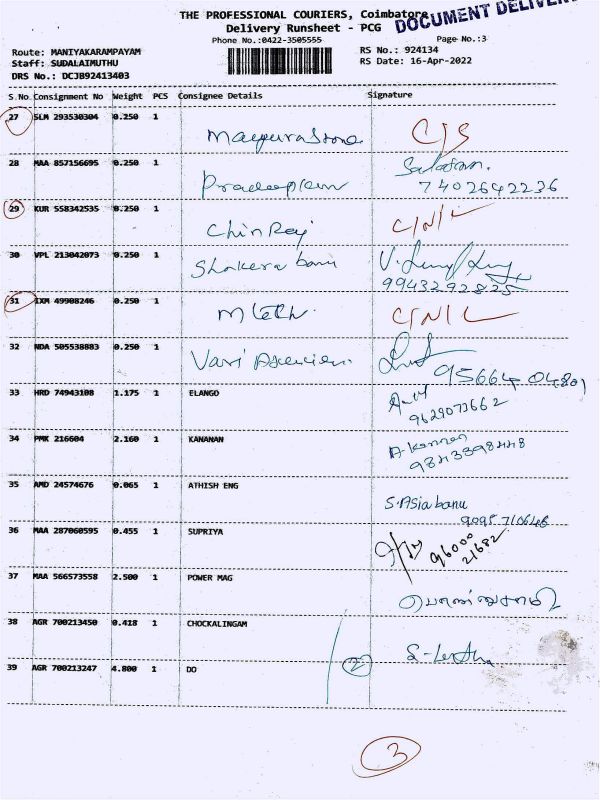 THE PROFESSIONAL COURIERS, Coimbatore
DOCUMENT DELIVER
Delivery Runsheet - PCG
Phone No.:0422-3505555
Page No.:3
Route: MANIYAKARAMPAYAM
RS No.: 924134
Staff: SUDALAIMUTHU
RS Date: 16-Apr-2022
DRS No.: DCJB92413403
S.No Consignment No Weight PCS Consignee Details Signature
27 SLM 293530304 0.250 1 C/S
28 MAA 857156695 0.250 1
7402642236
29 KUR 558342535 0.250 1 Chin Raj C/N/L
30 VPL 213042073 0.250 1 Shakera banu
9943292825
31 IXM 49908246 0.250 1 C/N/L
32 NDA 505538883 0.250 1 95664 04801
33 HRD 74943108 1.175 1 ELANGO
9629073662
34 PMK 216604 2.160 1 KANANAN A. Kannan
9843398448
35 AMD 24574676 0.065 1 ATHISH ENG S. Asia banu
9095710646
36 MAA 287060595 0.455 1 SUPRIYA 96000
21682
37 MAA 566573558 2.500 1 POWER MAG பொன்னுசாமி
38 AGR 700213450 0.418 1 CHOCKALINGAM
39 AGR 700213247 4.800 1 DO 2
3